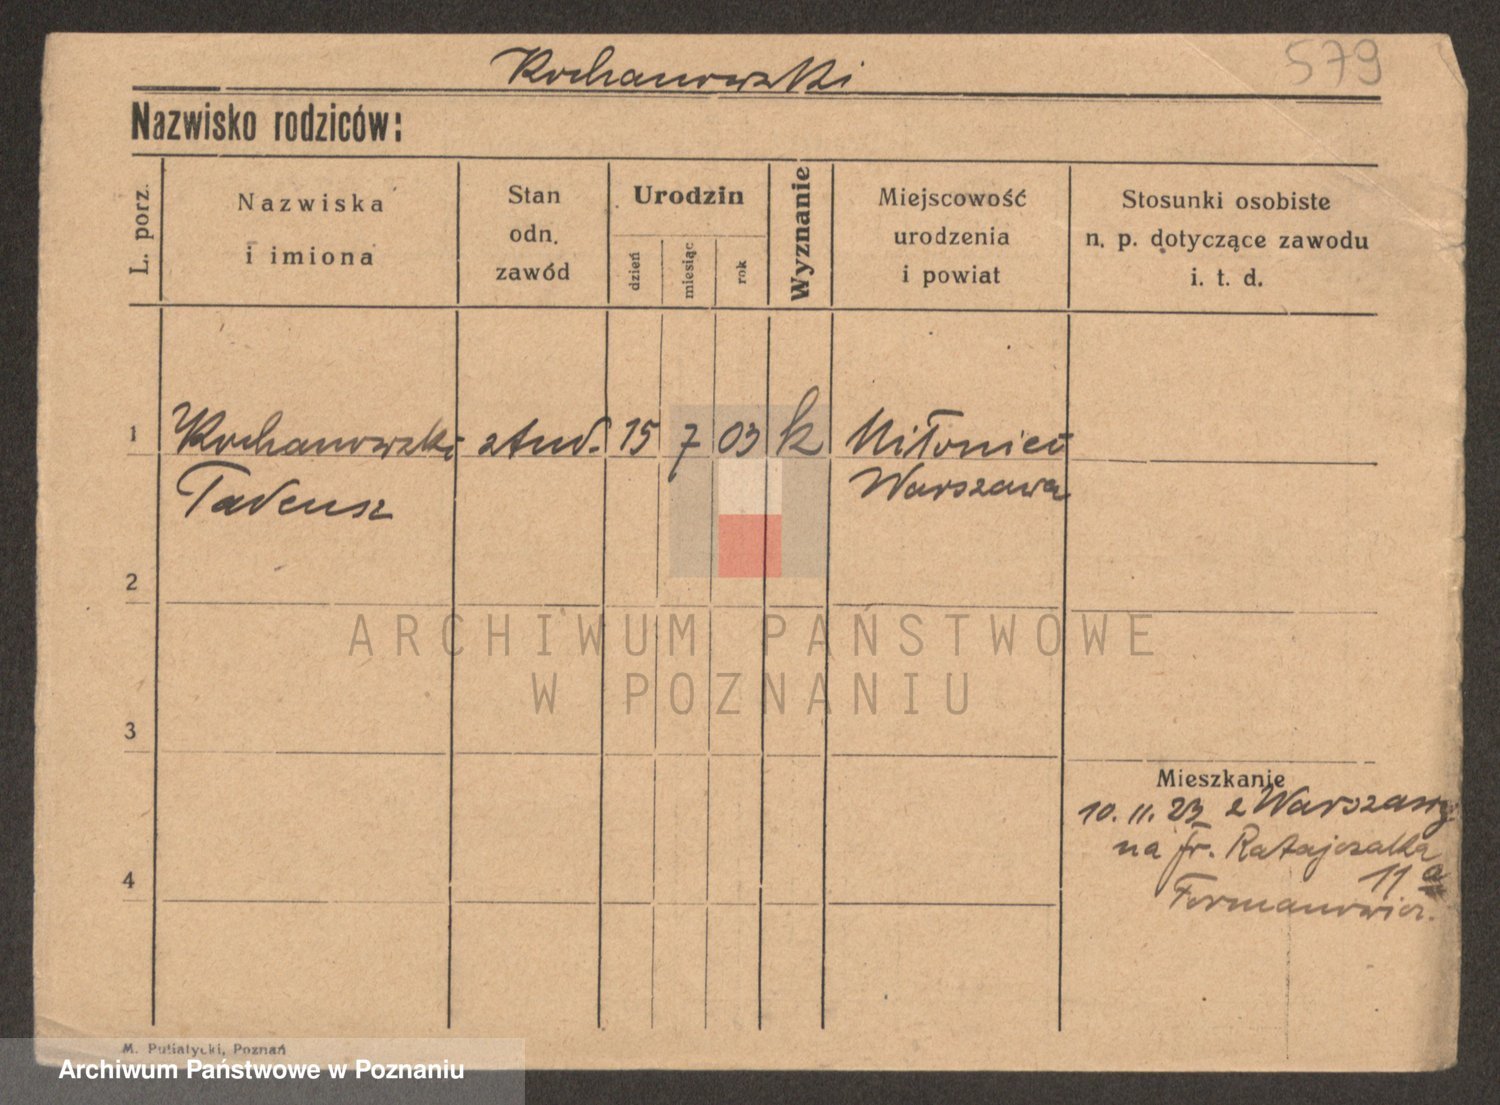 Kochanowski
579
Nazwisko rodziców:
L. porz.
Nazwiska
i imiona
Stan
odn.
zawód
Urodzin
dzień
miesiąc
rok
Wyznanie
Miejscowość
urodzenia
i powiat
Stosunki osobiste
n. p. dotyczące zawodu
i. t. d.
1 Kochanowski stud. 15 7 03 k
Tadeusz Warszawa
2
ARCHIWUM PAŃSTWOWE
W POZNANIU
3
Mieszkanie
10. 11. 23 z Warszawy
na fr. Ratajczaka
11a
4
M. Putiatycki, Poznań
Archiwum Państwowe w Poznaniu